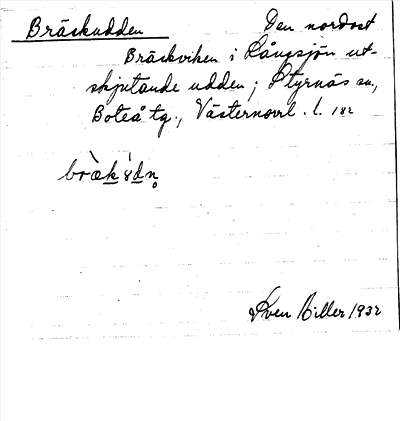 Bräskudden Den nordost
Bräskviken i Långsjön ut-
skjutande udden; Styrnäs sn.,
Boteå tg., Västernorrl. l. 182
Sven Hiller 1932